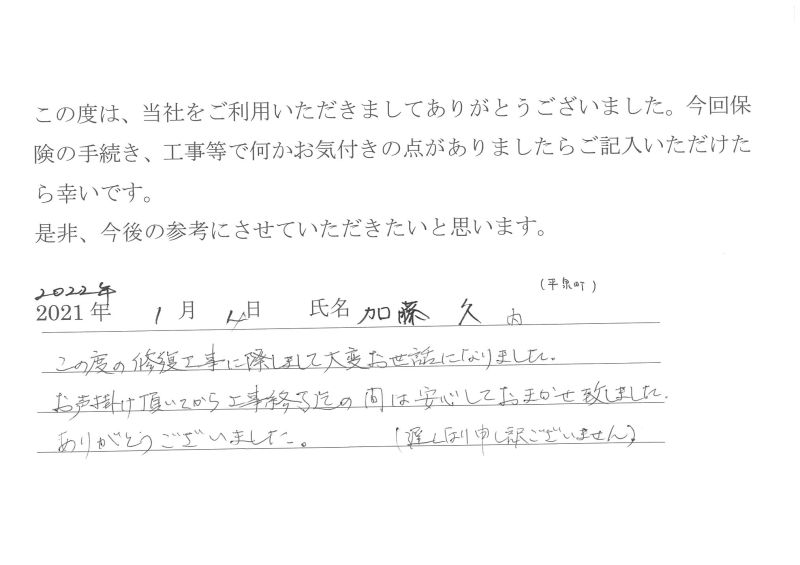 この度は、当社をご利用いただきましてありがとうございました。今回保
険の手続き、工事等で何かお気付きの点がありましたらご記入いただけた
ら幸いです。
是非、今後の参考にさせていただきたいと思います。
(平泉町)
2022年
2021年 1月 4日 氏名 加藤 久 内
この度の修復工事に際しまして大変お世話になりました。
お声掛け頂いてから工事終了迄の間は安心しておまかせ致しました。
ありがとうございました。 (遅くなり申し訳ございません)